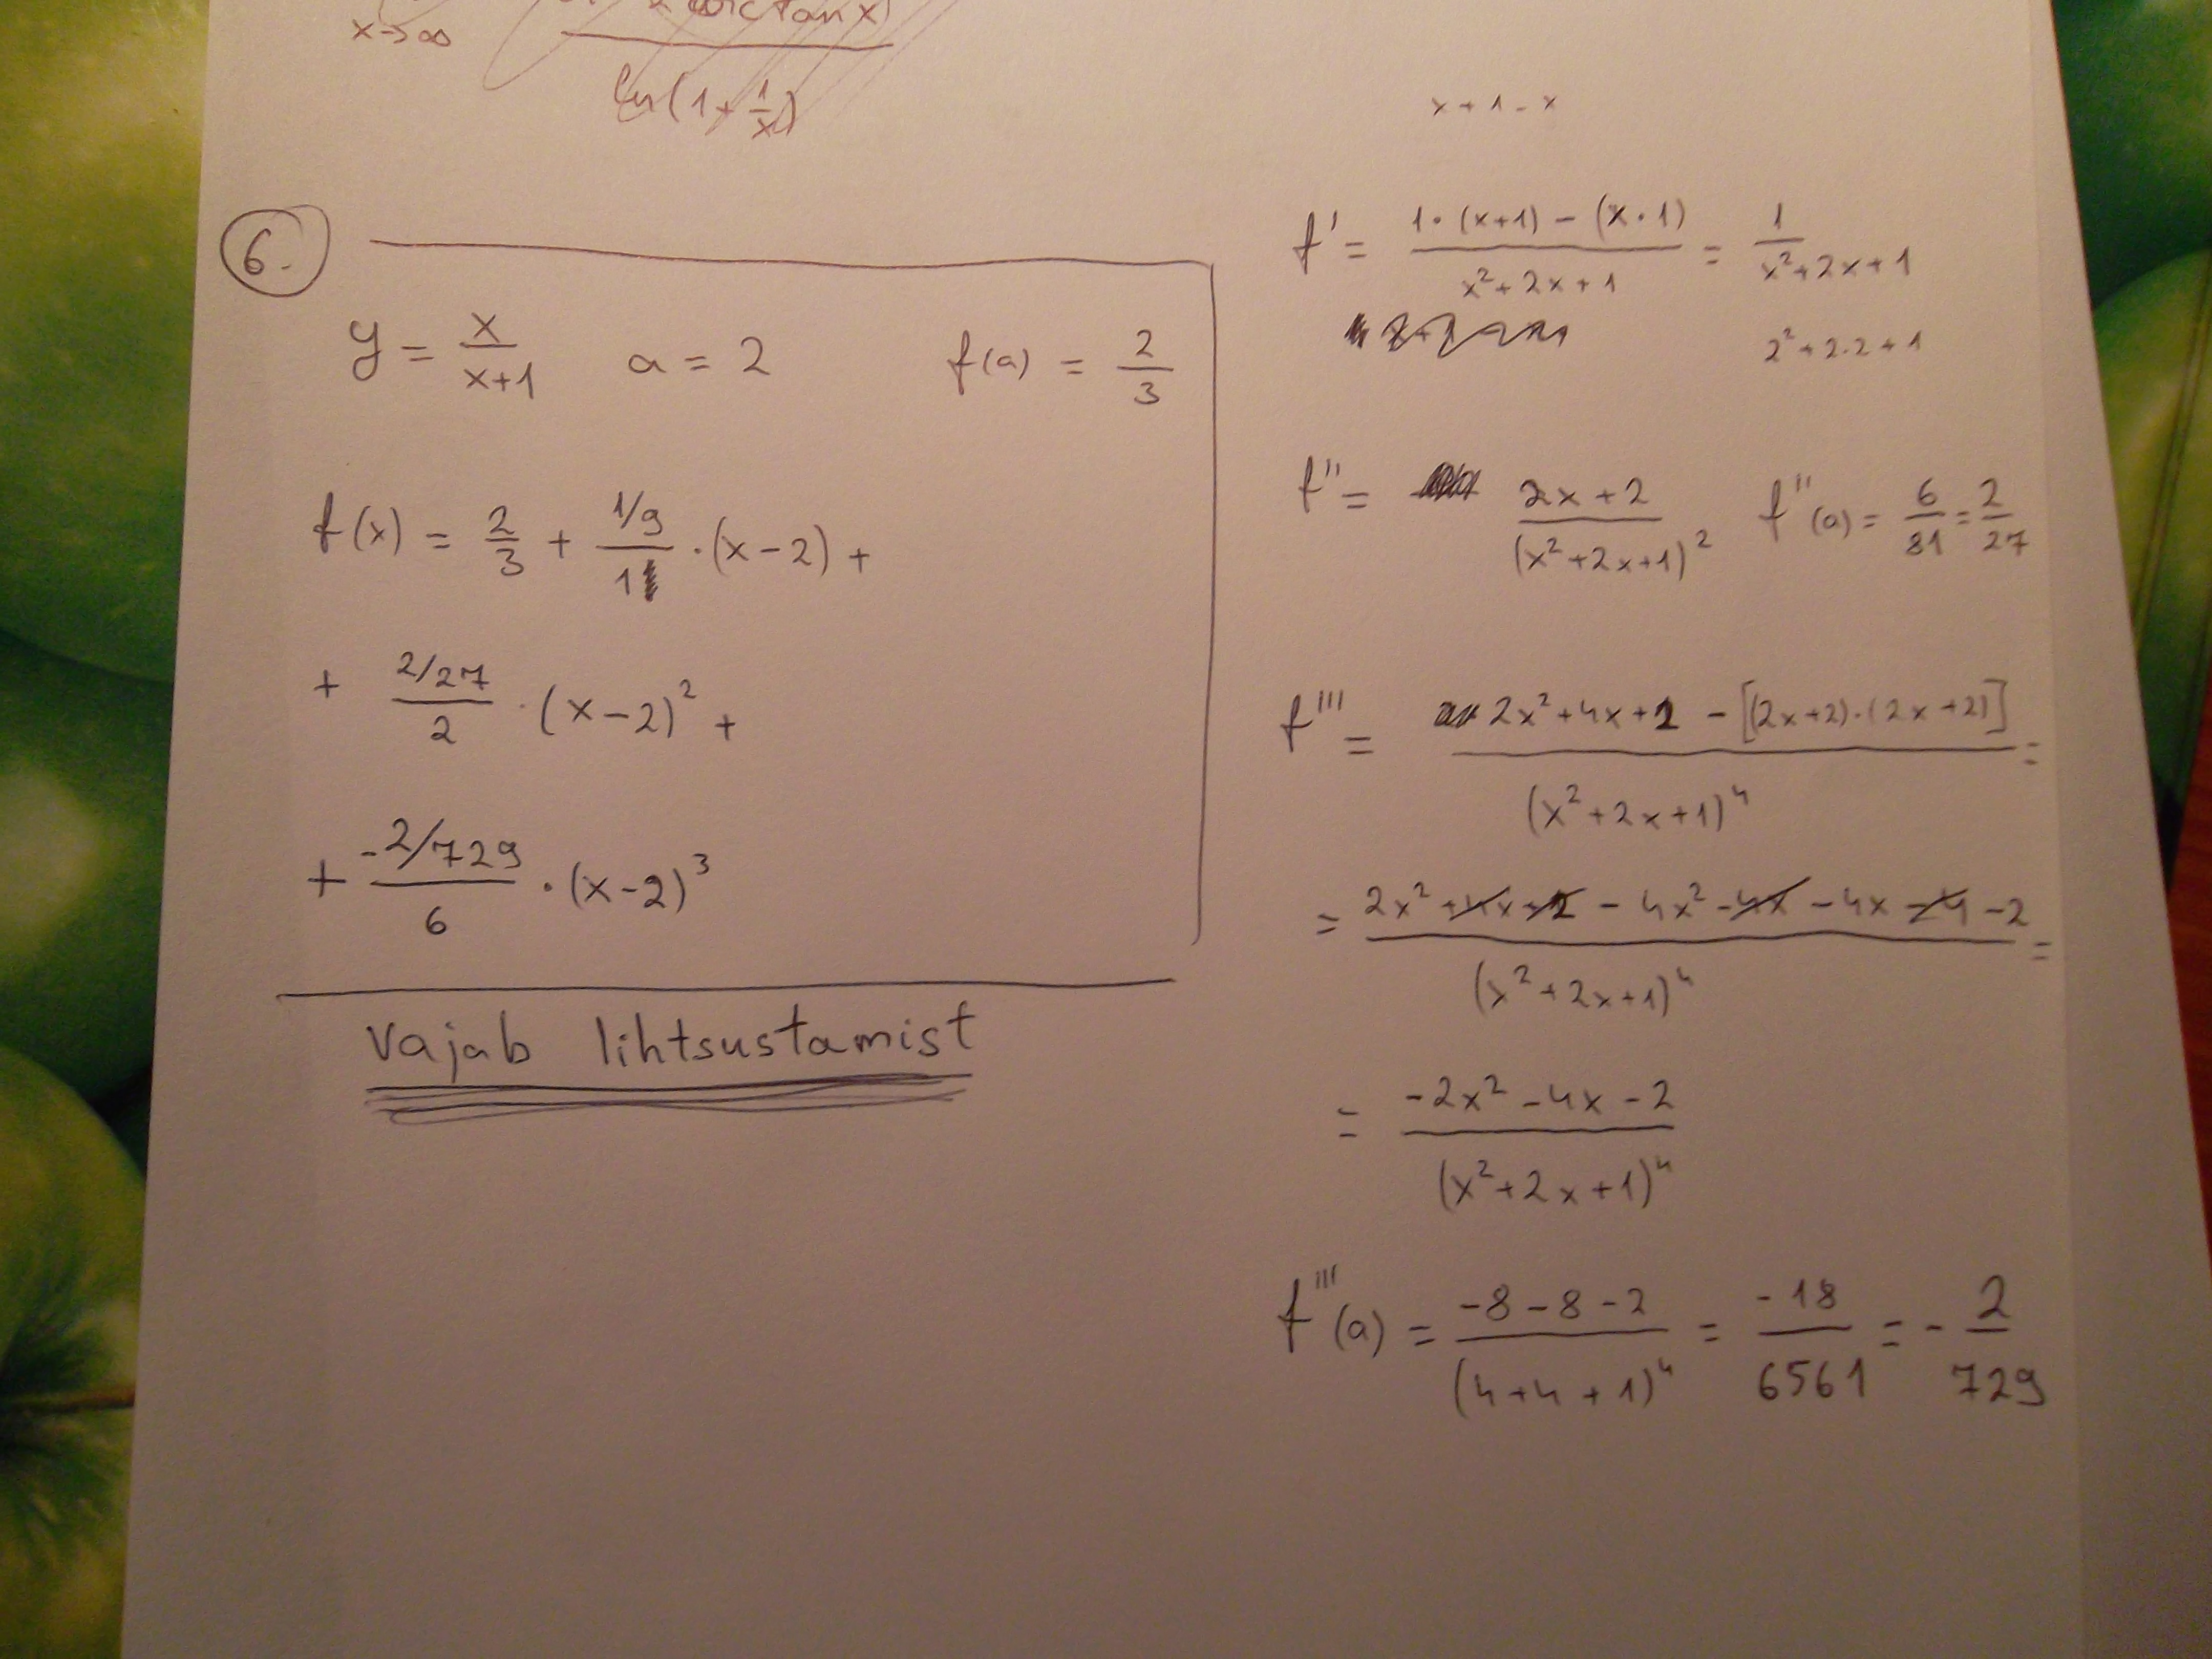 x→∞ arctan x)
ln(1+1/x)
6.
y = x/(x+1) a = 2 f(a) = 2/3
f(x) = 2/3 + (1/9)/1 · (x-2) +
+ (2/27)/2 · (x-2)² +
+ (-2/729)/6 · (x-2)³
vajab lihtsustamist
x + 1 - x
f' = (1·(x+1) - (x·1))/(x²+2x+1) = 1/(x²+2x+1)
2²+2·2+1
f'' = (2x+2)/(x²+2x+1)² f''(a) = 6/81 = 2/27
f''' = (2x²+4x+2 - [(2x+2)·(2x+2)])/(x²+2x+1)⁴ =
= (2x²+4x+2 - 4x² - 4x - 4x - 4 - 2)/(x²+2x+1)⁴ =
= (-2x² - 4x - 2)/(x²+2x+1)⁴
f'''(a) = (-8-8-2)/(4+4+1)⁴ = -18/6561 = -2/729